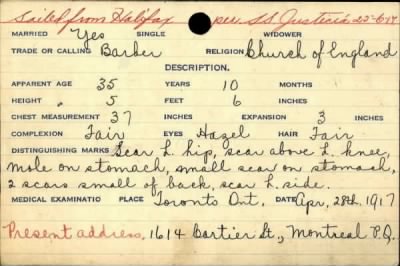 Sailed from Halifax per S.S. Justicia 25-6-17
MARRIED Yes SINGLE WIDOWER
TRADE OR CALLING Barber RELIGION Church of England
DESCRIPTION.
APPARENT AGE 35 YEARS 10 MONTHS
HEIGHT 5 FEET 6 INCHES
CHEST MEASUREMENT 37 INCHES EXPANSION 3 INCHES
COMPLEXION Fair EYES Hazel HAIR Fair
DISTINGUISHING MARKS Scar L. hip, scar above L. knee,
mole on stomach, small scar on stomach,
2 scars small of back, scar L. side.
MEDICAL EXAMINATION PLACE Toronto Ont. DATE Apr. 28th, 1917
Present address, 1614 Cartier St., Montreal P.Q.